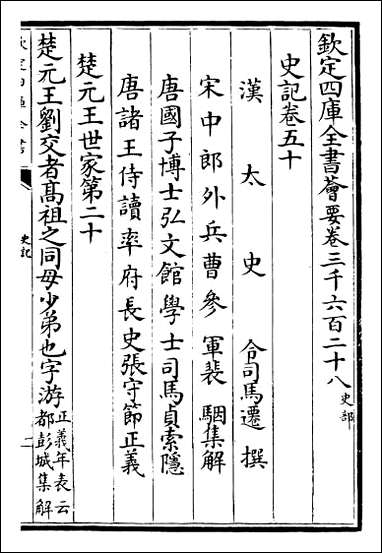 欽定四庫全書薈要卷三千六百二十八史部
史記卷五十
漢太史令司馬遷撰
宋中郎外兵曹參軍裴駰集解
唐國子博士弘文館學士司馬貞索隱
唐諸王侍讀率府長史張守節正義
楚元王世家第二十
楚元王劉交者髙祖之同母少弟也字游正義年表云都彭城集解
史記